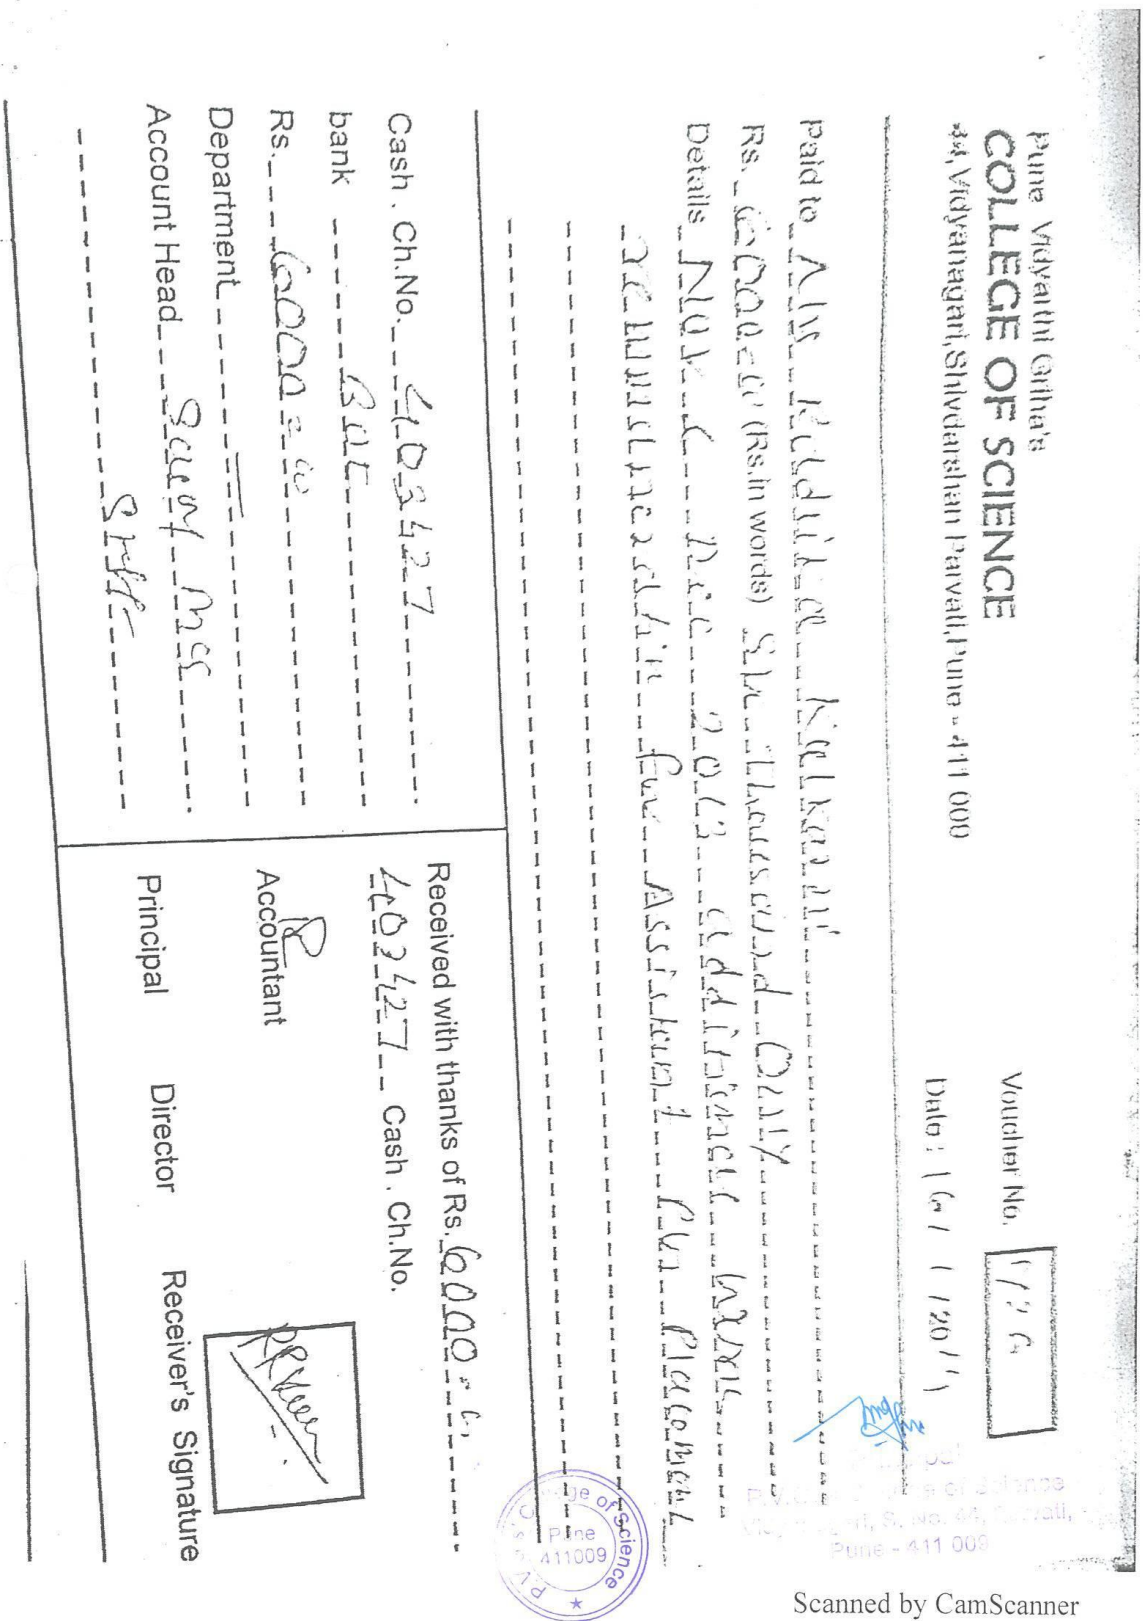 Pune Vidyarthi Griha's
COLLEGE OF SCIENCE
44, Vidyanagari, Shivdarshan Parvati, Pune - 411 009
Voucher No.
Date : 16/ 1 /20
Paid to Radhika Kulkarni
Rs. 6000=00 (Rs.in words) Six Thousand Only
Details Nov & Dec 2013 additional work
remuneration for Assistant Placement
Cash . Ch.No. 403427
bank
Rs. 6000=00
Department
Account Head
Received with thanks of Rs. 6000=00
403427 Cash . Ch.No.
Accountant
Principal Director Receiver's Signature
College of Science
Pune
411009
of Science
Pune - 411 009
Scanned by CamScanner